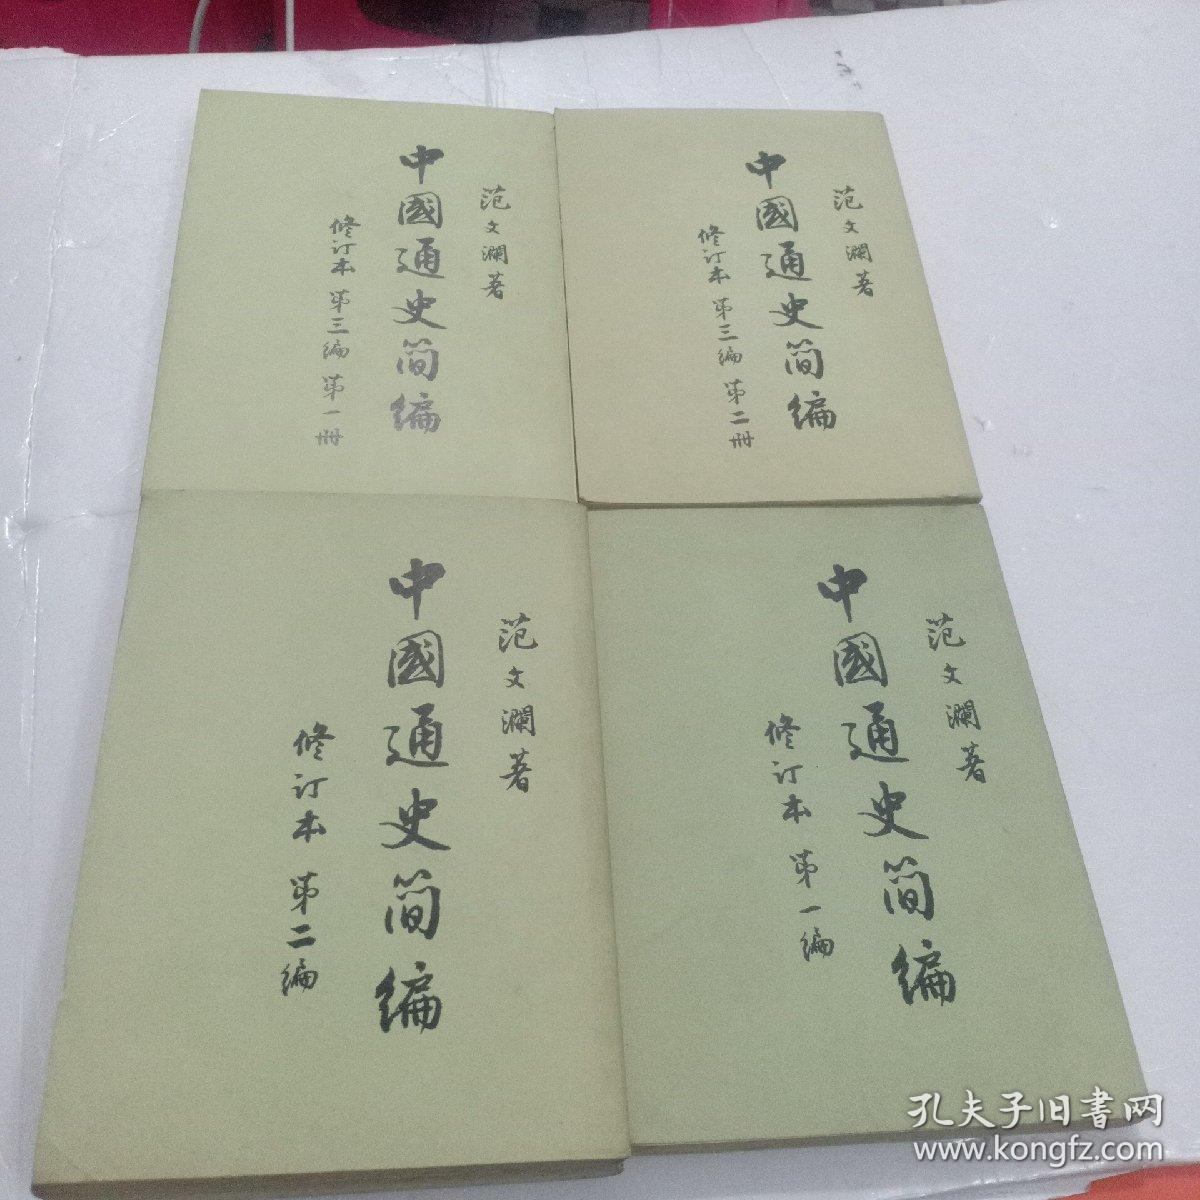 范文澜著
中國通史简编
修订本 第三编 第一册
范文澜著
中國通史简编
修订本 第三编 第二册
范文澜著
中國通史简编
修订本 第二编
范文澜著
中國通史简编
修订本 第一编
孔夫子旧書网
www.kongfz.com